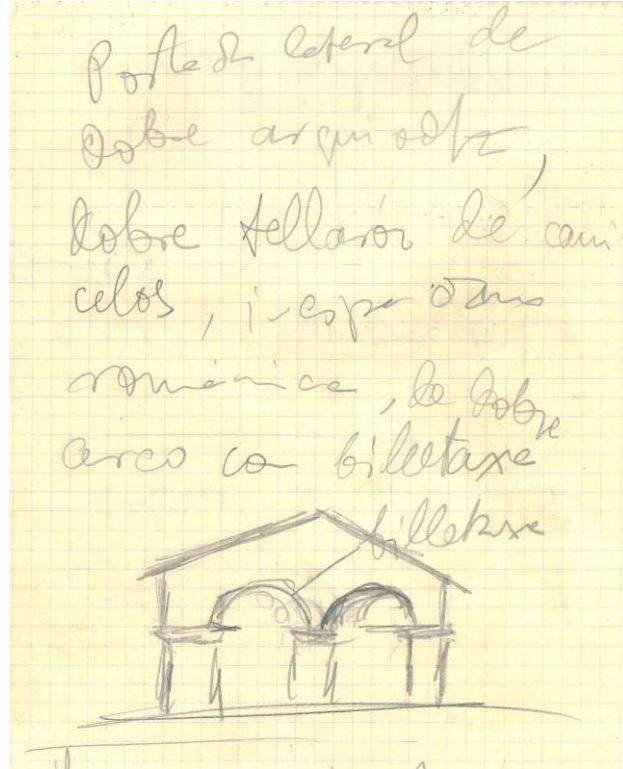 Portada lateral de
dobre arquivolta,
dobre tellaroz de can
celos,
románica, de dobre
arco con billetaxe
billetaxe